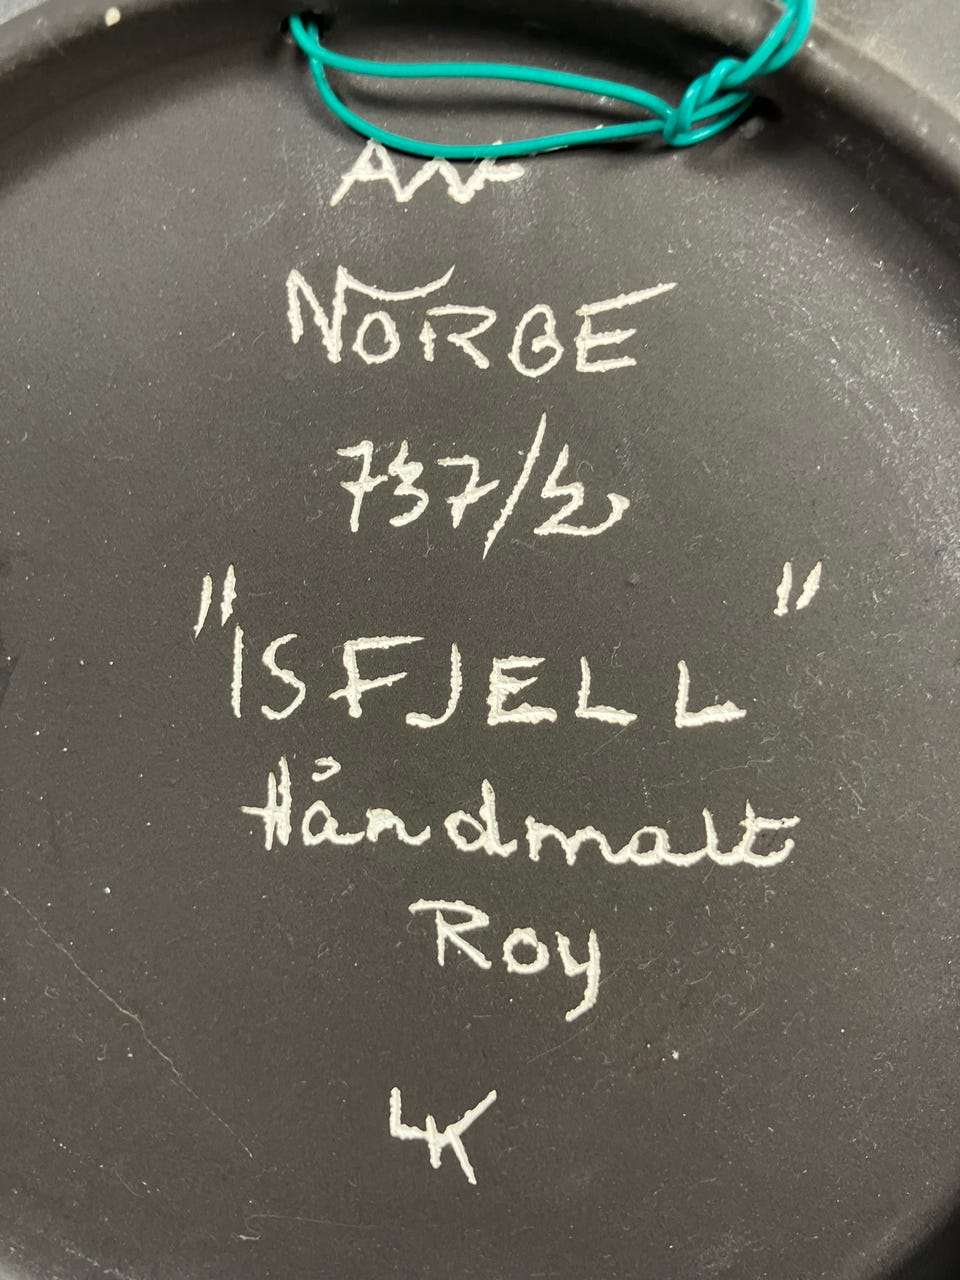 NORGE
737/2
"ISFJELL"
Håndmalt
Roy
LK